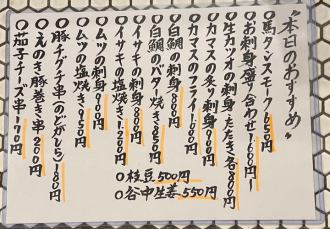 "本日のおすすめ"
○馬タンスモーク 650円
○お刺身盛り合わせ 1600円〜
○生カツオの刺身・たたき 各800円
○カマスの炙り刺身 900円
○カマスのフライ 1,000円
○白鯛の刺身 800円
○白鯛のバター焼き 850円
○イサキの刺身 800円
○イサキの塩焼き 1,200円
○ムツの刺身 910円
○ムツの塩焼き 950円
○豚チグチ串(のどがしら) 180円
○えのき豚巻き串 200円
○茄子チーズ串 170円
○枝豆 500円
○谷中生姜 550円